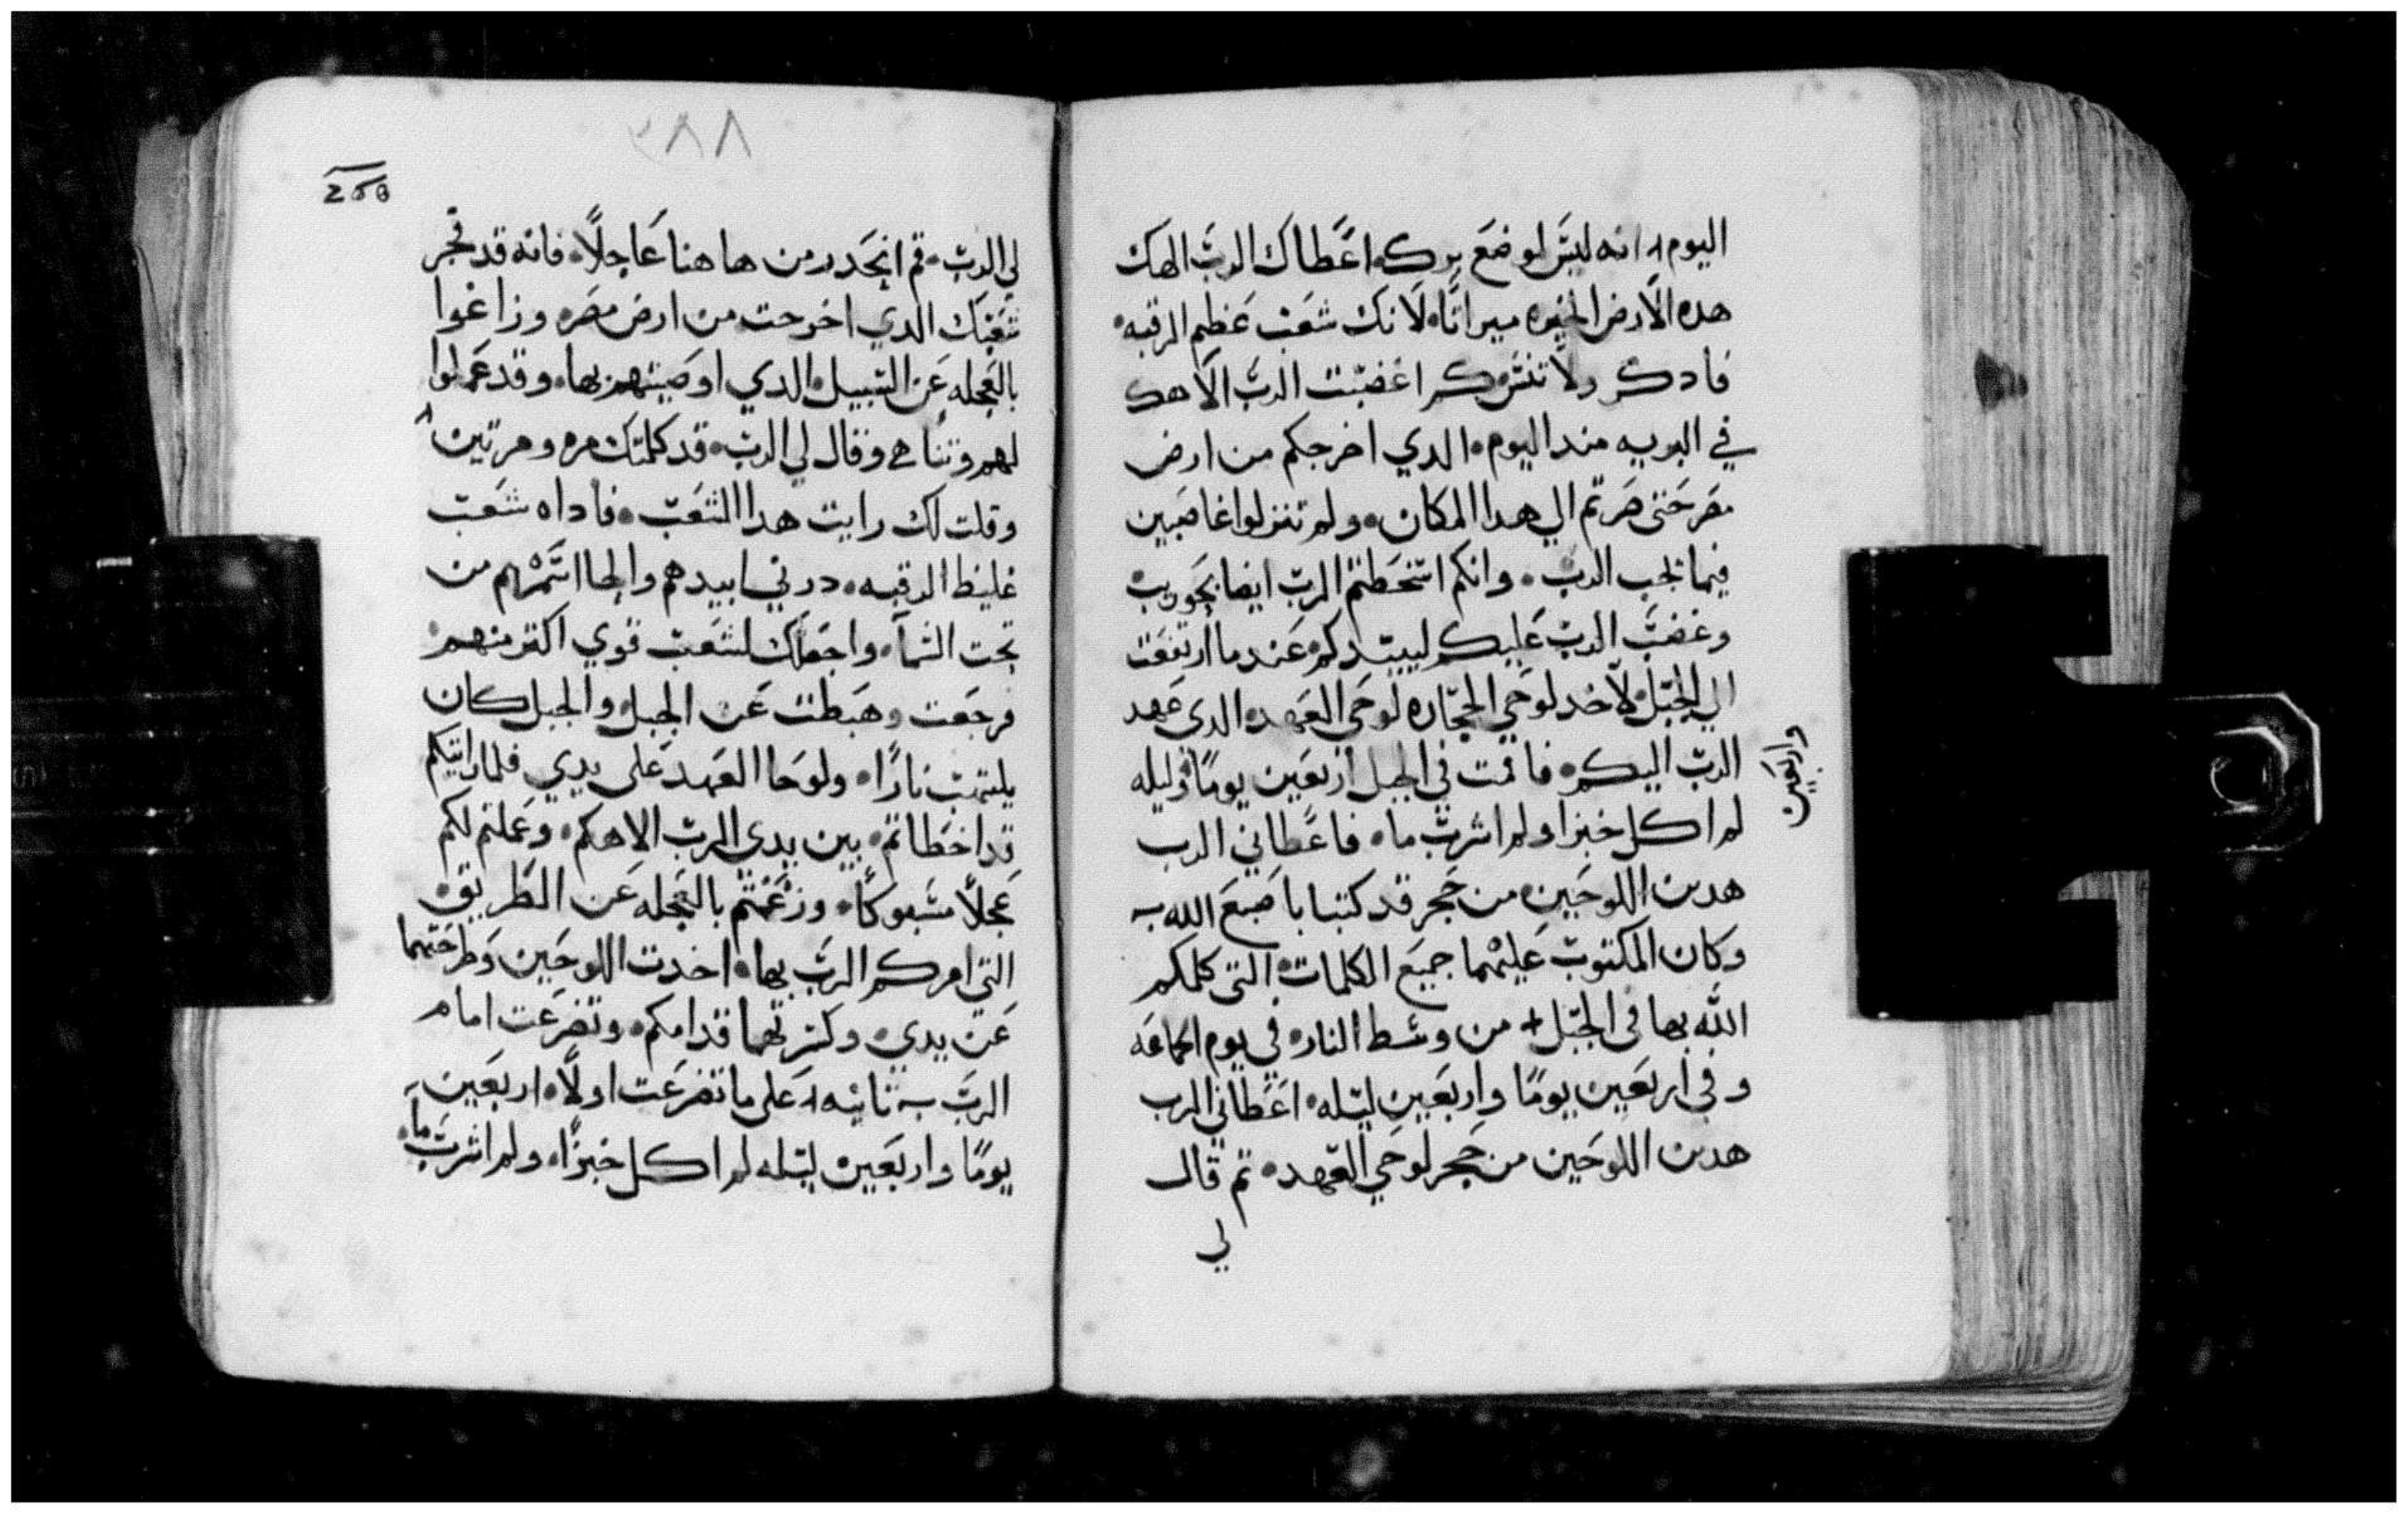 اليوم انه ليس لوضع برك اعطاك الرب الهك
هده الارض الخيره ميراثا لانك شعب عظيم الرقبه
فادكر ولا تنس كم اغضبت الرب الاهك
في البريه مند اليوم الدي اخرجكم من ارض
مصر حتى صرتم الي هدا المكان ولم تزلوا غاصبين
فيما لجب الرب وانكم اسخطتم الرب ايضا بحوريب
وغضب الرب عليكم ليبيدكم عند ما ارتفعت
الي الجبل لاخد لوحي الحجاره لوحي العهد الدي عهد
الرب اليكم فاقمت في الجبل اربعين يوما وليله
واربعين
لم اكل خبزا ولم اشرب ما فاعطاني الرب
هدين اللوحين من حجر قد كتبا باصبع الله
وكان المكتوب عليهما جميع الكلمات التي كلمكم
الله بها في الجبل من وسط النار في يوم الجماعه
وفي اربعين يوما واربعين ليله اعطاني الرب
هدين اللوحين من حجر لوحي العهد تم قال
لي
٢٨٨
258
لي الرب قم انحدر من هاهنا عاجلا فانه قد فجر
شعبك الدي اخرجت من ارض مصر وزاغوا
بالعجله عن السبيل الدي اوصيتهم بها وقد عملوا
لهم وتنا وقال لي الرب قد كلمتك مره ومرتين
وقلت لك رايت هدا الشعب فاداه شعب
غليظ الرقبه درني ابيدهم وامحا اسمهم من
تحت السما واجعلك لشعب قوي اكتر منهم
فرجعت وهبطت عن الجبل والجبل كان
يلتهب نارا ولوحا العهد على يدي فلما رايتكم
قد اخطاتم بين يدي الرب الاهكم وعملتم لكم
عجلا مسبوكا وزغتم بالعجله عن الطريق
التي امركم الرب بها اخدت اللوحين وطرحتهما
عن يدي وكسرتهما قدامكم وتضرعت امام
الرب تانيه على ما تضرعت اولا اربعين
يوما واربعين ليله لم اكل خبزا ولم اشرب ما